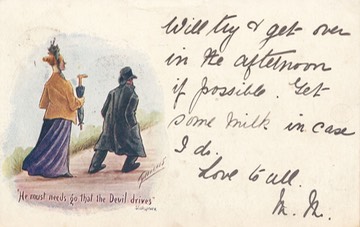 Will try & get over
in the afternoon
if possible. Get
some milk in case
I do.
Love to all.
M. M.
"He must needs go that the Devil drives"